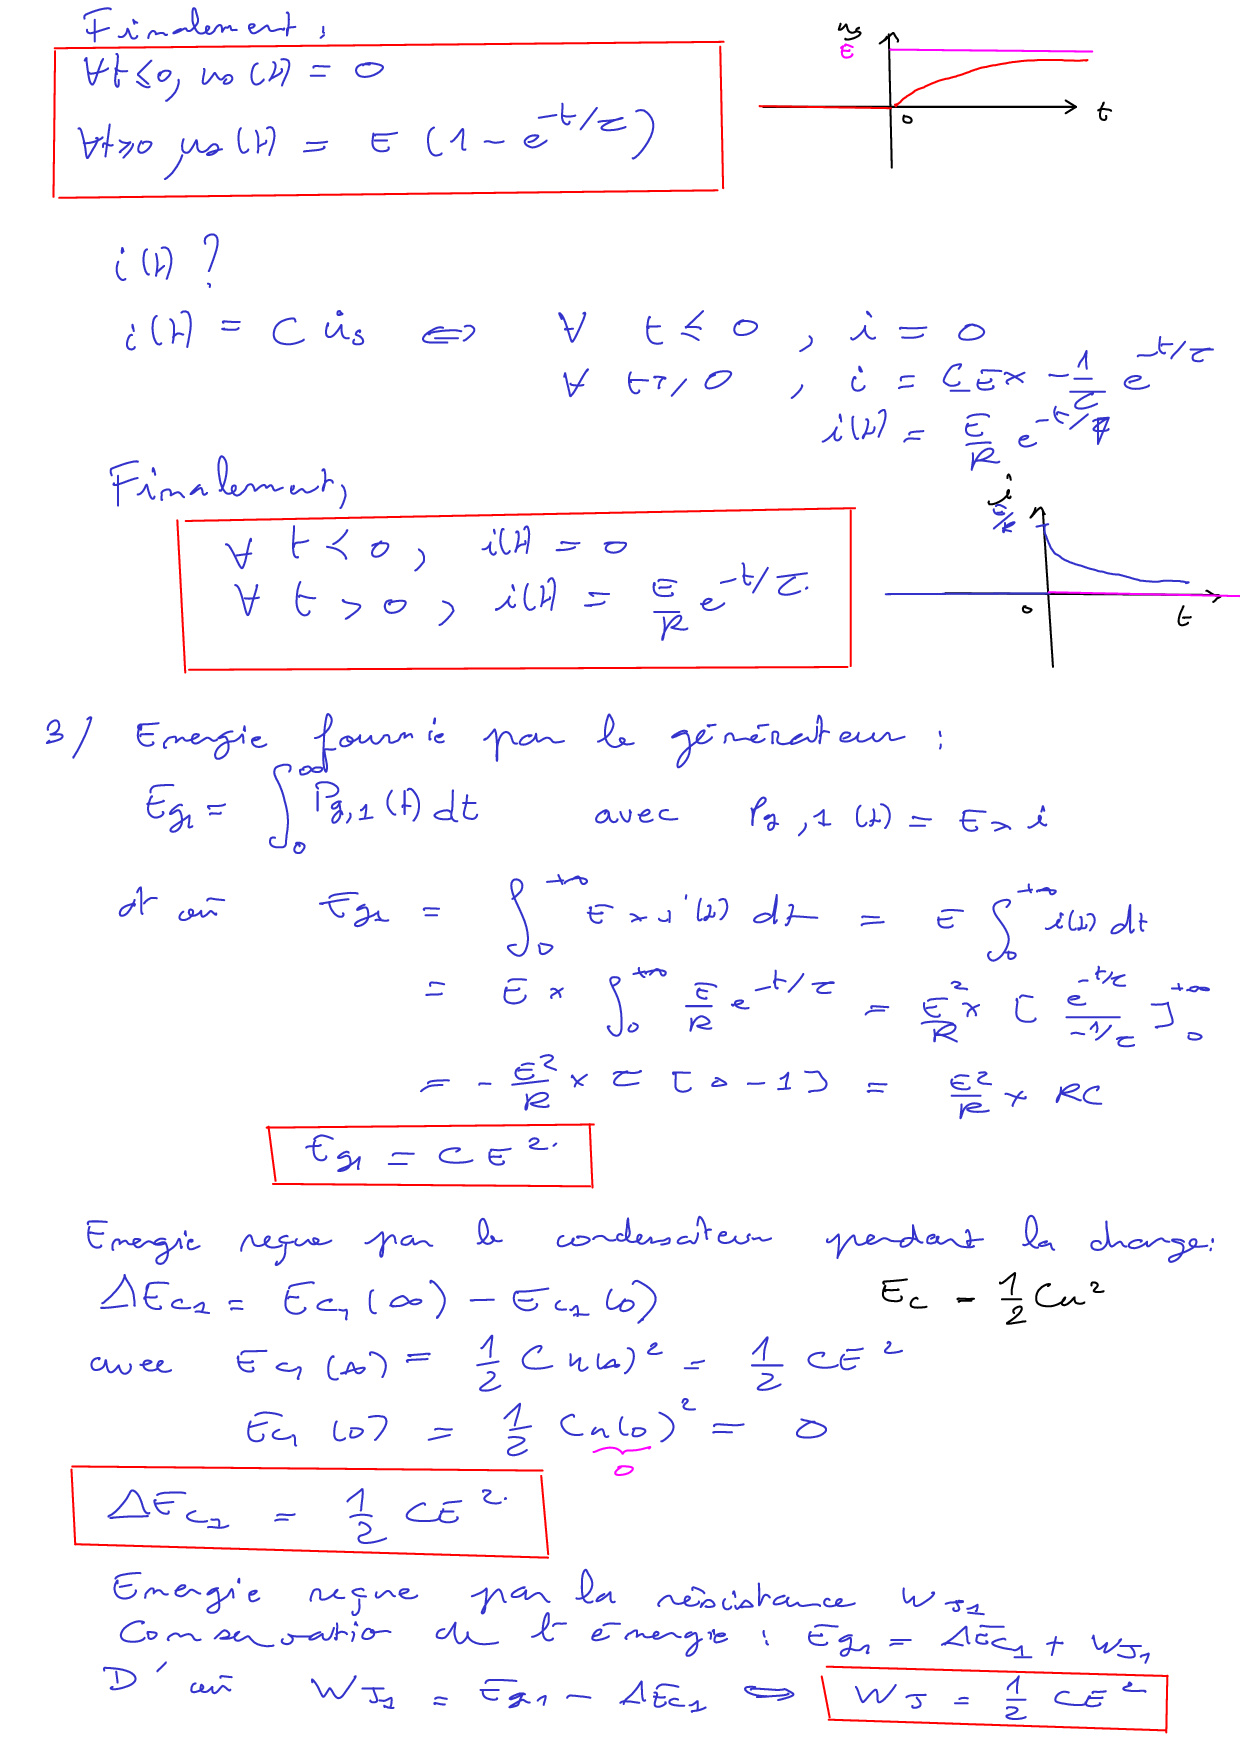 Finalement,
∀t ≤ 0, us(t) = 0
∀t ≥ 0, us(t) = E (1 - e^{-t/τ})
us
E
0
t
i(t) ?
i(t) = C u̇s ⇔ ∀ t ≤ 0, i = 0
∀ t ≥ 0, i = C E × -1/τ e^{-t/τ}
i(t) = E/R e^{-t/τ}
Finalement,
∀ t < 0, i(t) = 0
∀ t > 0, i(t) = E/R e^{-t/τ}.
i
E/R
0
t
3/ Energie fournie par le générateur :
Eg1 = ∫_0^∞ Pg,1(t) dt avec Pg,1(t) = E × i
d'où Eg1 = ∫_0^{+∞} E × i(t) dt = E ∫_0^{+∞} i(t) dt
= E × ∫_0^{+∞} E/R e^{-t/τ} = E²/R × [ e^{-t/τ} / (-1/τ) ]_0^{+∞}
= - E²/R × τ [0 - 1] = E²/R × RC
Eg1 = C E².
Energie reçue par le condensateur pendant la charge:
ΔEC1 = EC1(∞) - EC1(0)
EC = 1/2 Cu²
avec EC1(∞) = 1/2 C u(∞)² = 1/2 CE²
EC1(0) = 1/2 C u(0)² = 0
0
ΔEC1 = 1/2 CE².
Energie reçue par la résistance WJ1
Conservation de l'énergie : Eg1 = ΔEC1 + WJ1
D'où WJ1 = Eg1 - ΔEC1 ⇔ WJ = 1/2 CE²